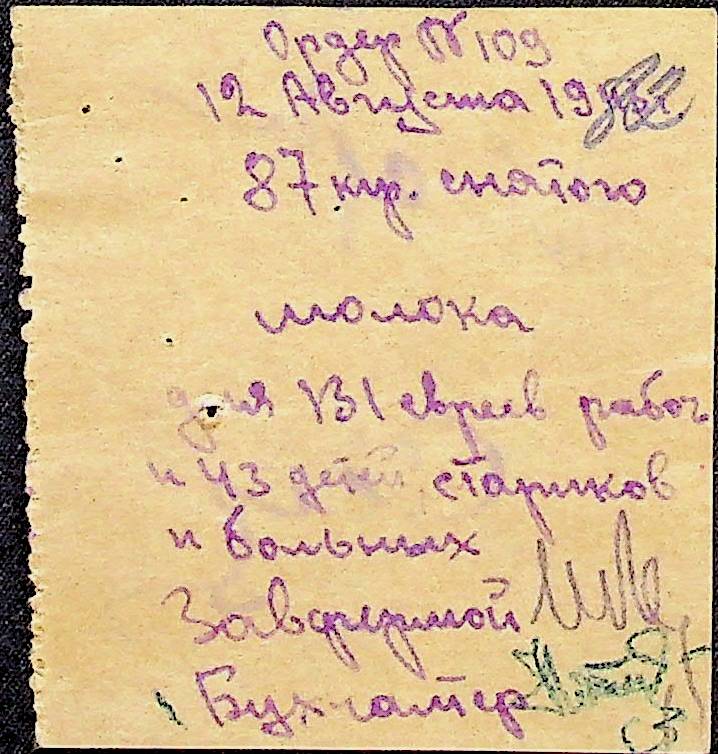 Ордер № 109
12 Августа 19
87 кгр. снятого
молока
для 131 евреев рабоч
и 43 детей, стариков
и больных
Завфермой
Бухгалтер